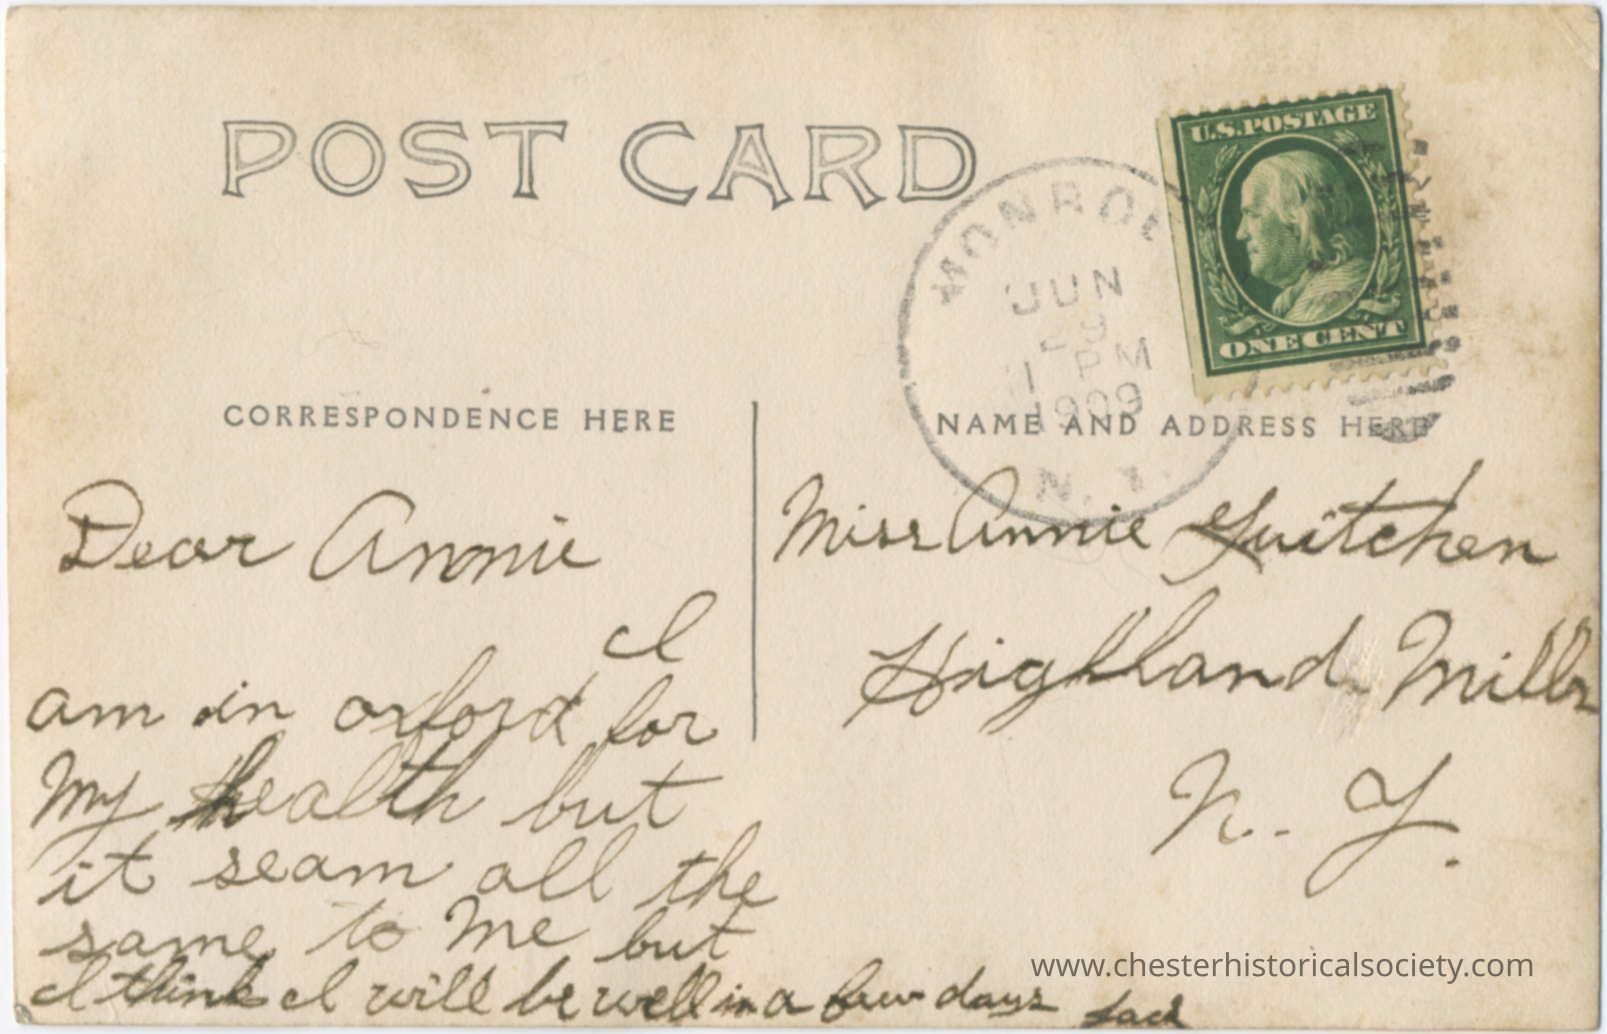 POST CARD
U.S. POSTAGE
ONE CENT
MONROE
JUN
29
1 PM
1909
N. Y.
CORRESPONDENCE HERE
NAME AND ADDRESS HERE
Dear Annie
I
am in oxford for
My health but
it seam all the
same to Me but
I think I will be well in a few days Jack
Miss Annie
Highland Mills
N. Y.
www.chesterhistoricalsociety.com